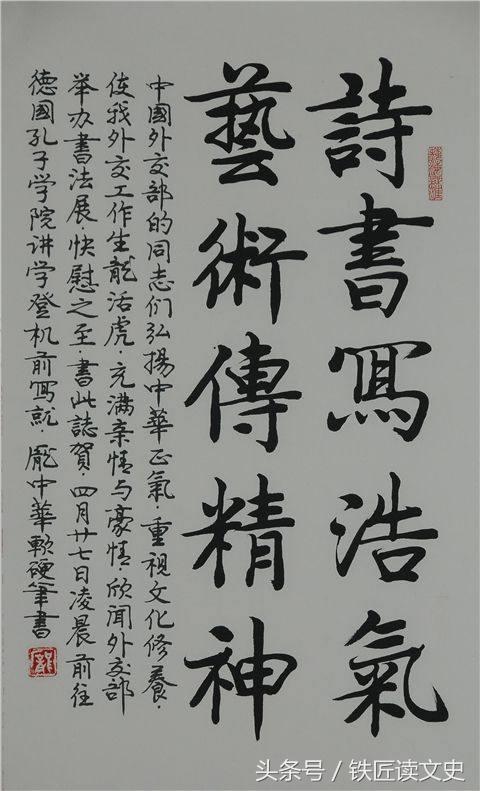 詩書冩浩氣
藝術傳精神
中國外交部的同志们弘揚中華正氣·重視文化修養
使我外交工作生龍活虎·充满亲情与豪情欣闻外交部
举办書法展·快慰之至·書此誌賀·四月廿七日凌晨前往
德國孔子学院讲学登机前冩就·龐中華軟硬筆書
头条号／铁匠读文史